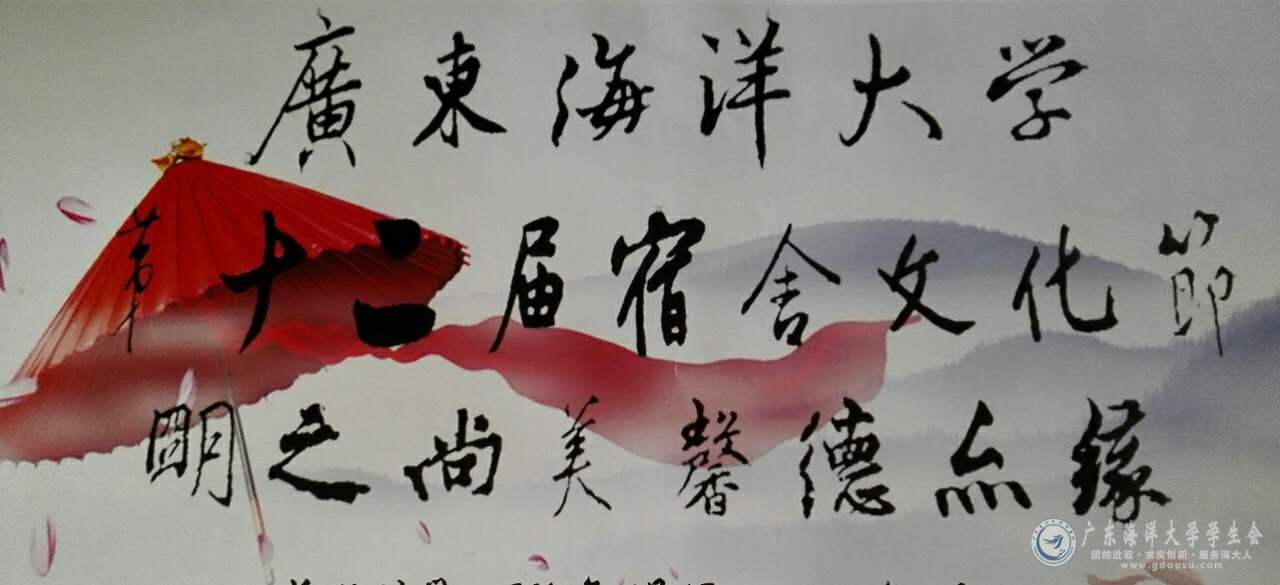 廣東海洋大学
第十二届宿舍文化節
明之尚美馨德
广东海洋大学学生会
团结进取·求实创新·服务海大人
www.gdousu.com